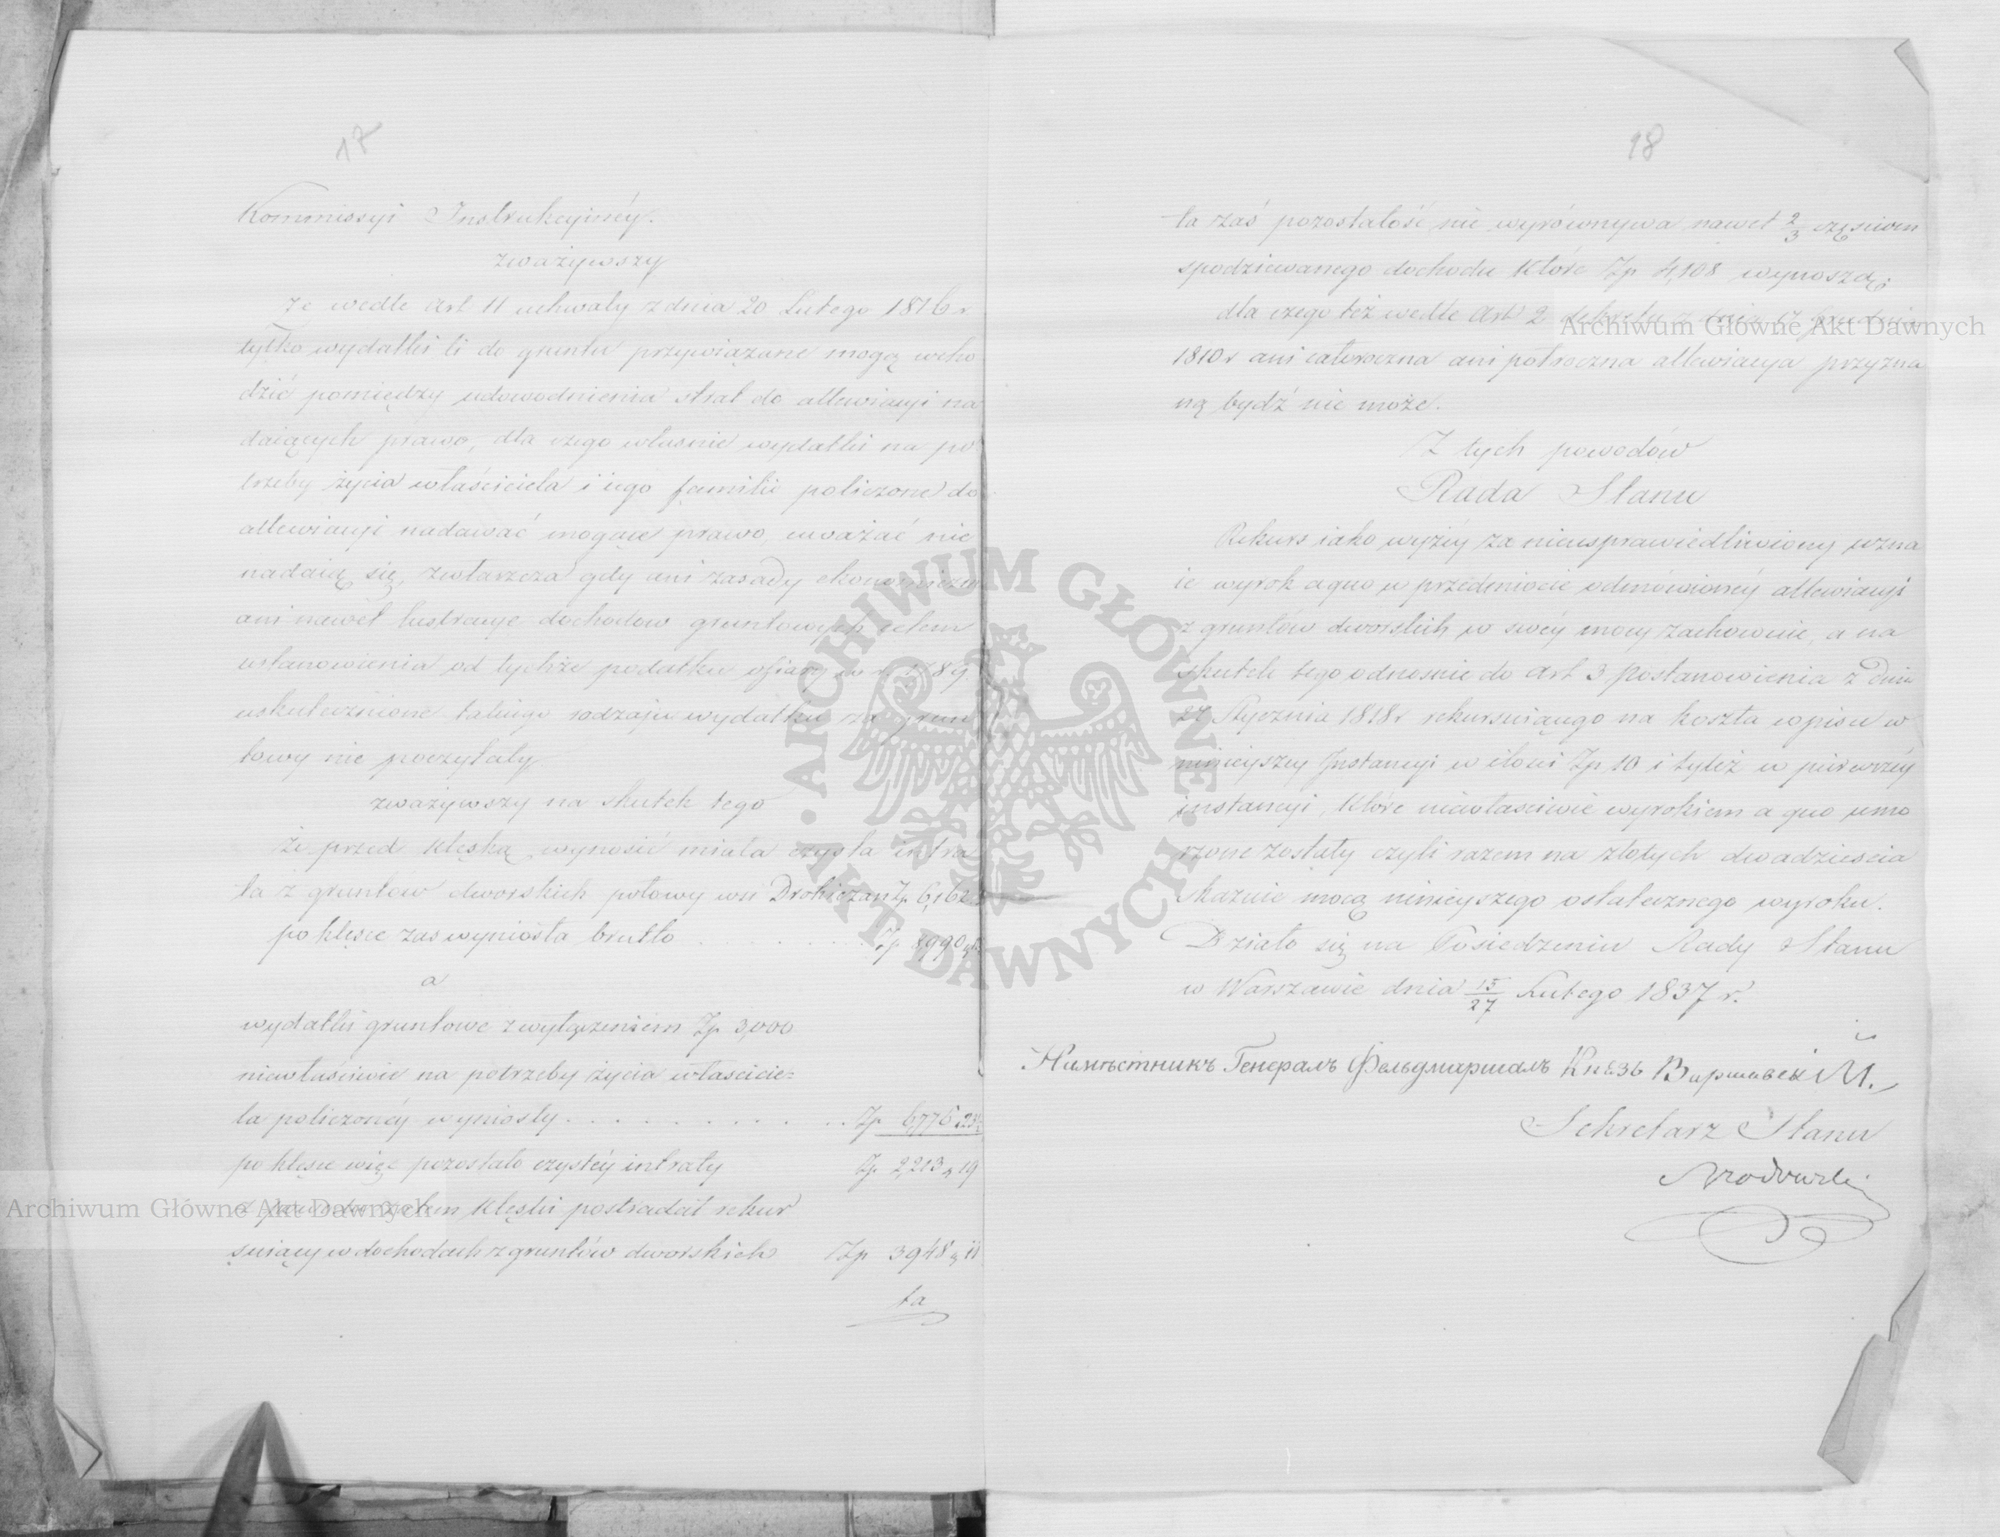 17
Kommissyi Instrukcyinéy.
zważywszy
że wedle Art 11 uchwały z dnia 20 Lutego 1816 r
tylko wydatki li do gruntu przywiązane mogą wcho
dzić pomiędzy udowodnienia strat do allewiacyi na
daiących prawo, dla czego właśnie wydatki na po
trzeby życia właściciela i iego familii policzone do
allewiacyi nadawać mogące prawo uważać nie
nadaią się, zwłaszcza gdy ani zasady ekonomiczne
ani nawet lustracye dochodów gruntowych celem
ustanowienia od tychże podatku ofiary w r. 1789
uskutecznione takiego rodzaju wydatku za grun
towy nie poczytały
zważywszy na skutek tego
że przed klęską wynosić miała czysta intra
ta z gruntów dworskich połowy wsi Drohiczan Zp 6,162
po klęsce zaś wyniosła brutto . . . . . . . Zp 8,990
a
wydatki gruntowe z wyłączeniem Zp 3,000
niewłaściwie na potrzeby życia właścicie=
la policzonéy wyniosły . . . . . . . . . . Zp 6,776
po klęsce więc pozostało czystéy intraty Zp 2,213 g 19
z powodu zatem klęski postradał rekur
suiący w dochodach z gruntów dworskich Zp 3948 g 11
ta
18
ta zaś pozostałość nie wyrównywa nawet 2/3 częściom
spodziewanego dochodu które Zp 4,108 wynoszą;
dla czego też wedle Art 2 dekretu z dnia grudnia
1810 r ani całoroczna ani półroczna allewiacya przyzna
ną bydź nie może.
Z tych powodów
Rada Stanu
Rekurs iako wyżéy za nieusprawiedliwiony uzna
ie wyrok a quo w przedmiocie odmówionéy allewiacyi
z gruntów dworskich w swéy mocy zachowuie, a na
skutek tego odnośnie do Art 3 postanowienia z dnia
27 Stycznia 1818 r rekursuiącego na koszta wpisu w
ninieyszey Instancyi w ilości Zp 10 i tyleż w pierwszéy
instancyi, które niewłaściwie wyrokiem a quo umo
rzone zostały czyli razem na złotych dwadzieścia
skazuie mocą ninieyszego ostatecznego wyroku.
Działo się na Posiedzeniu Rady Stanu
w Warszawie dnia 15/27 Lutego 1837 r.
Намѣстникъ Генералъ Фельдмаршалъ Князь Варшавскій
Sekretarz Stanu
Archiwum Główne Akt Dawnych
Archiwum Główne Akt Dawnych
· ARCHIWUM GŁÓWNE · AKT DAWNYCH